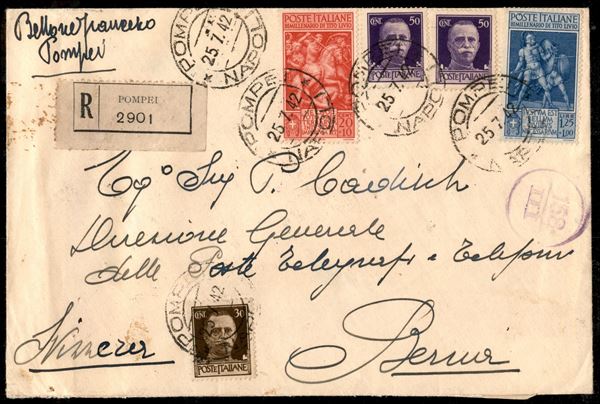 Bellone Francesco
Pompei
R
POMPEI
2901
POSTE ITALIANE
BIMILLENARIO DI TITO LIVIO
20+10
CENT. 50
POSTE ITALIANE
CENT. 50
POSTE ITALIANE
POSTE ITALIANE
BIMILLENARIO DI TITO LIVIO
LIRE 1,25+1,00
POMPEI
25.7.42
NAPOLI
POMPEI
25.7.42
NAPOLI
25.7.42
NAPOLI
POMPEI
25.7.42
158
III
Direzione Generale
delle Poste Telegrafi e Telefoni
Svizzera
Berna
POMPEI
42
CENT. 30
POSTE ITALIANE